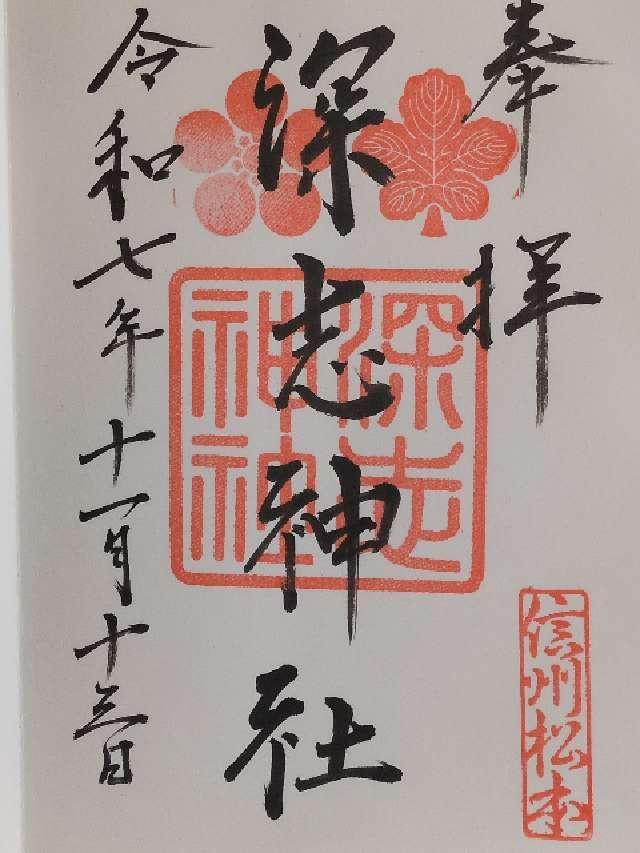 奉拝
信州松本
深志神社
深志
神社
令和七年十一月十三日